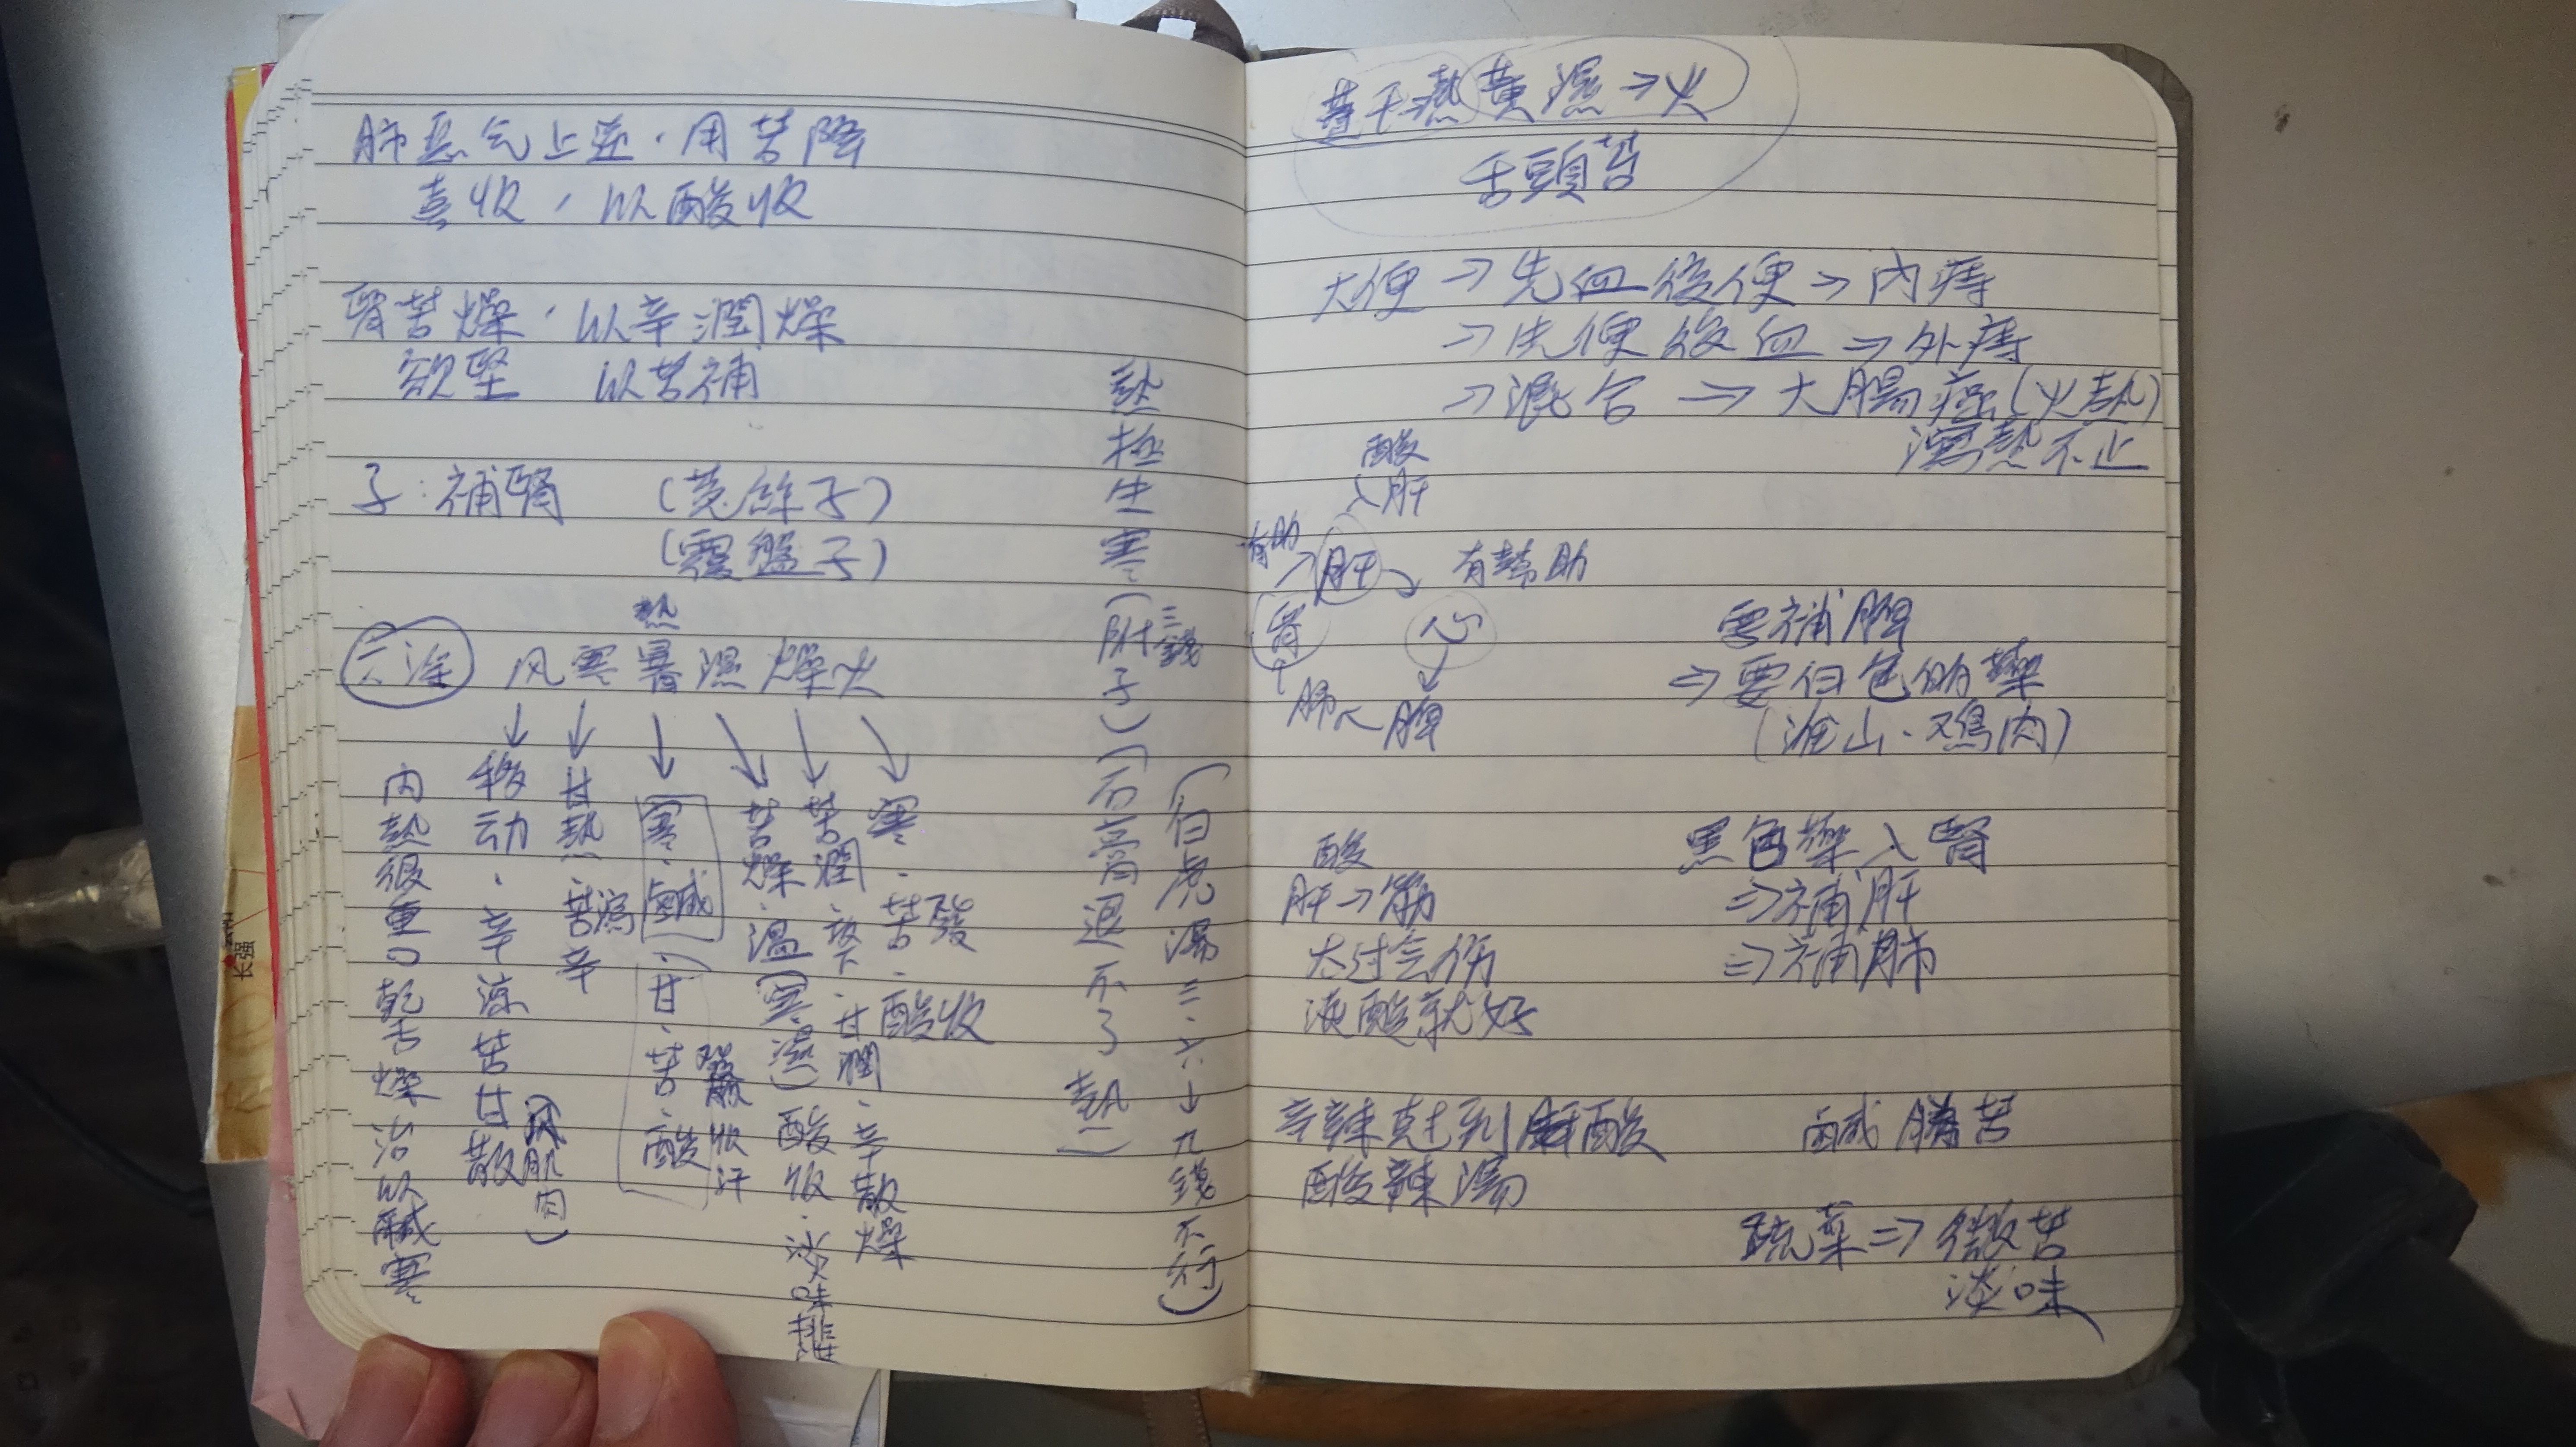 肺惡气上逆，用苦降
喜收，以酸收
腎苦燥，以辛潤燥
欲堅 以苦補
子：補腎 (菟絲子)
(覆盤子)
熱
六淫 风寒暑濕燥火
內熱很重口乾舌燥治以鹹寒
移动．辛涼苦甘散(风肌肉)
甘熱．苦瀉辛
寒．鹹．甘．苦酸收汗
苦燥．溫(寒濕)酸收．淡味
苦潤．下．甘潤．辛散燥
寒．苦發．酸收
熱極生寒(附子)(石膏退不了熱)
三錢
(白虎湯三、六→九錢不行)
干熱黃濕→火
舌頭苦
大便→先血後便→內痔
→先便後血→外痔
→混合→大腸癌(火熱)
瀉熱不止
酸
入肝
有助→肝→有幫助
腎 心
肺 脾
要補脾
⇒要白色的藥
(淮山．鸡肉)
酸
肝→筋
太过会伤
微酸就好
黑色藥入腎
⇒補肝
⇒補肺
辛辣尅到肝酸
酸辣湯
鹹勝苦
蔬菜⇒微苦
淡味
长强